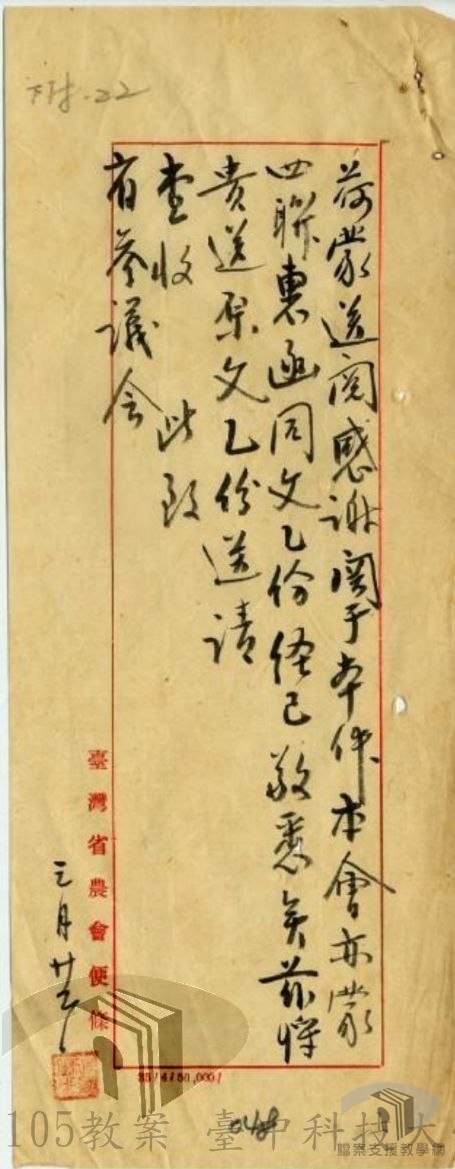 下附.22
荷蒙送閱感謝関于本件本會亦蒙
四聯惠函同文乙份経已敬悉矣茲将
貴送原文乙份送請
查收　此致
省参議会
臺灣省農會便條
三月廿
35/4/50,000/
105教案 臺中科技大
檔案支援教學網